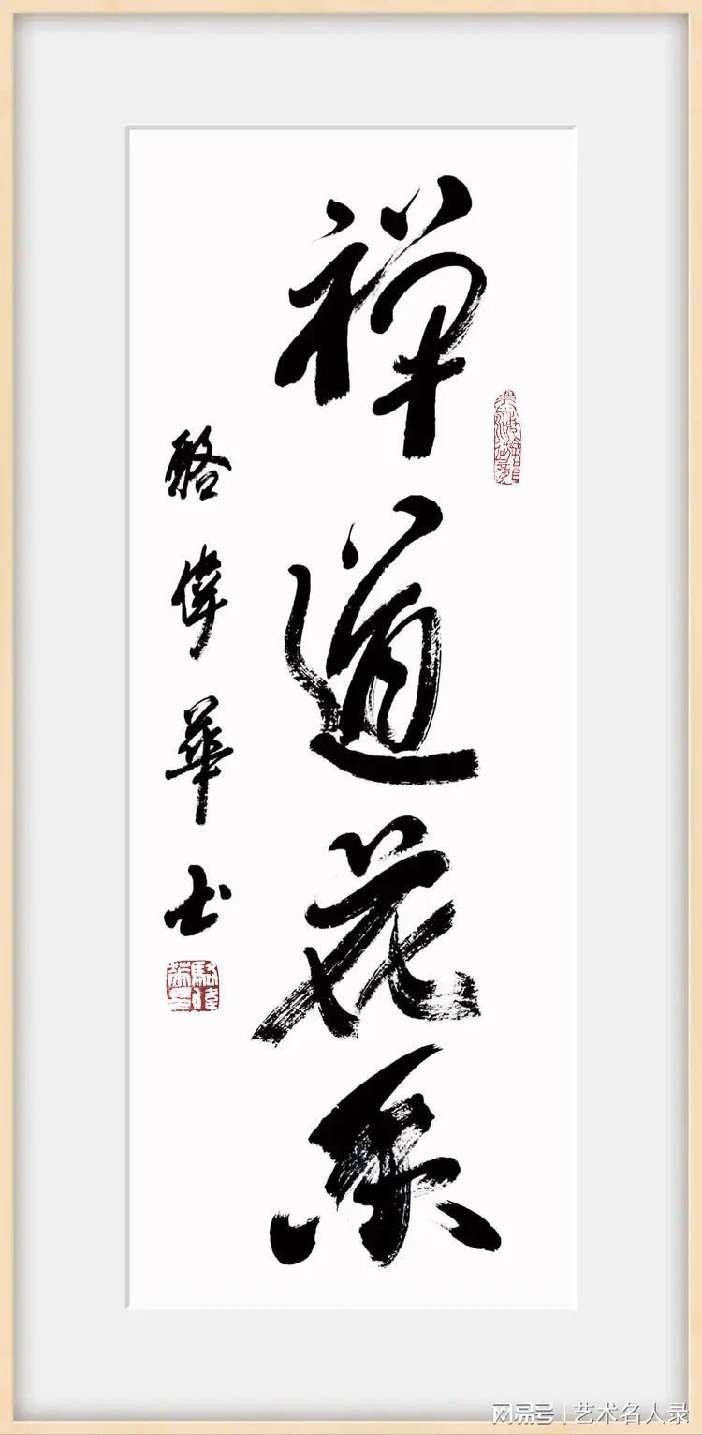 禅道花系
駱偉華书
网易号 | 艺术名人录